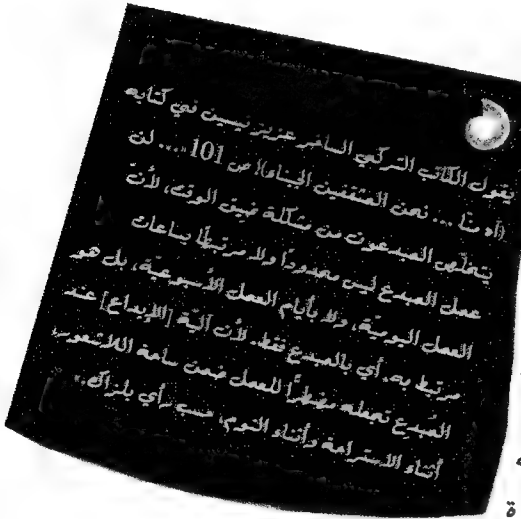 يقول الكاتب التركي الساخر عزيز نيسين في كتابه
(آه منّا ... نحن المثقفين الجبناء) ص 101 «... لن
يتخلّص المبدعون من مشكلة ضيق الوقت، لأنّ
عمل المبدع ليس محدوداً ولا مرتبطاً بساعات
العمل اليوميّة، ولا بأيام العمل الأسبوعيّة، بل هو
مرتبط به. أي بالمبدع فقط. لأن آليّة [الإبداع] عند
المُبدع تجعله مضطرّاً للعمل ضمن ساحة اللاشعور،
أثناء الاستراحة وأثناء النوم، حسب رأي بلزاك.»
ة